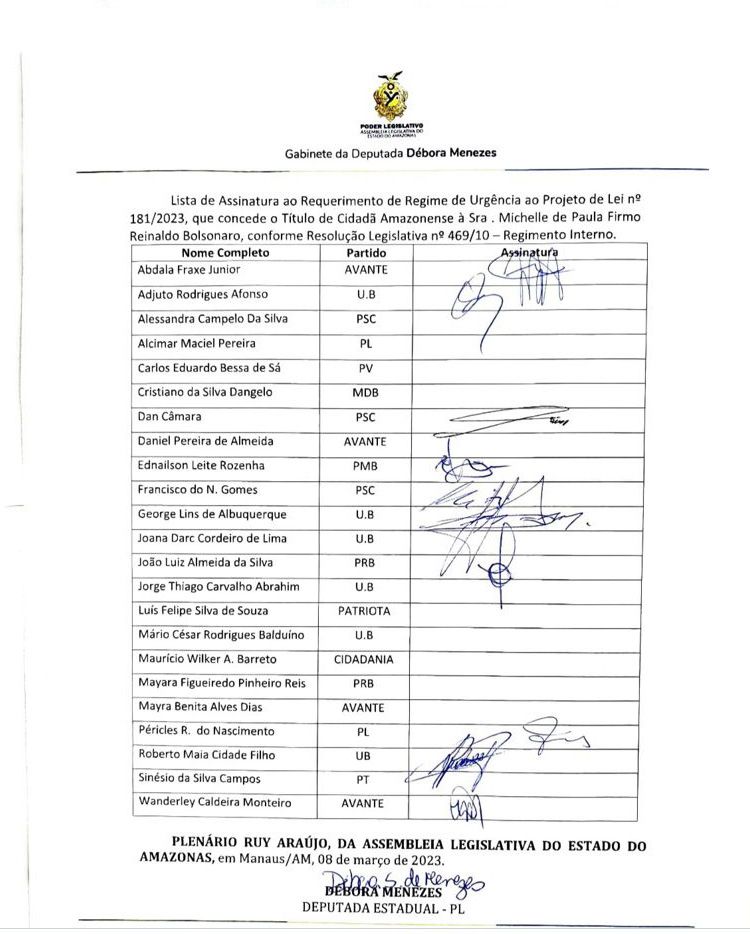 PODER LEGISLATIVO
ASSEMBLEIA LEGISLATIVA DO
ESTADO DO AMAZONAS
Gabinete da Deputada Débora Menezes
Lista de Assinatura ao Requerimento de Regime de Urgência ao Projeto de Lei nº
181/2023, que concede o Título de Cidadã Amazonense à Sra . Michelle de Paula Firmo
Reinaldo Bolsonaro, conforme Resolução Legislativa nº 469/10 – Regimento Interno.
Nome Completo Partido Assinatura
Abdala Fraxe Junior AVANTE
Adjuto Rodrigues Afonso U.B
Alessandra Campelo Da Silva PSC
Alcimar Maciel Pereira PL
Carlos Eduardo Bessa de Sá PV
Cristiano da Silva Dangelo MDB
Dan Câmara PSC
Daniel Pereira de Almeida AVANTE
Ednailson Leite Rozenha PMB
Francisco do N. Gomes PSC
George Lins de Albuquerque U.B
Joana Darc Cordeiro de Lima U.B
João Luiz Almeida da Silva PRB
Jorge Thiago Carvalho Abrahim U.B
Luís Felipe Silva de Souza PATRIOTA
Mário César Rodrigues Balduíno U.B
Maurício Wilker A. Barreto CIDADANIA
Mayara Figueiredo Pinheiro Reis PRB
Mayra Benita Alves Dias AVANTE
Péricles R. do Nascimento PL
Roberto Maia Cidade Filho UB
Sinésio da Silva Campos PT
Wanderley Caldeira Monteiro AVANTE
PLENÁRIO RUY ARAÚJO, DA ASSEMBLEIA LEGISLATIVA DO ESTADO DO
AMAZONAS, em Manaus/AM, 08 de março de 2023.
Débora S. de Menezes
DÉBORA MENEZES
DEPUTADA ESTADUAL - PL